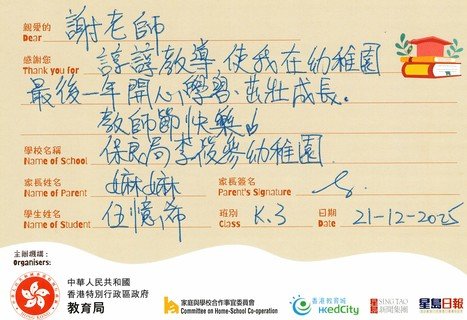 親愛的 謝老師
Dear
感謝您 諄諄教導,使我在幼稚園
Thank you for
最後一年開心學習、茁壯成長。
教師節快樂!
學校名稱 保良局李俊駒幼稚園
Name of School
家長姓名 嫲嫲 家長簽名
Name of Parent Parent's Signature
學生姓名 伍憶希 班別 K.3 日期 21-12-2025
Name of Student Class Date
主辦機構:
Organisers:
中華人民共和國
香港特別行政區政府
教育局
家庭與學校合作事宜委員會
Committee on Home-School Co-operation
香港教育城
HKedCity
星島 SING TAO
新聞集團
星島日報